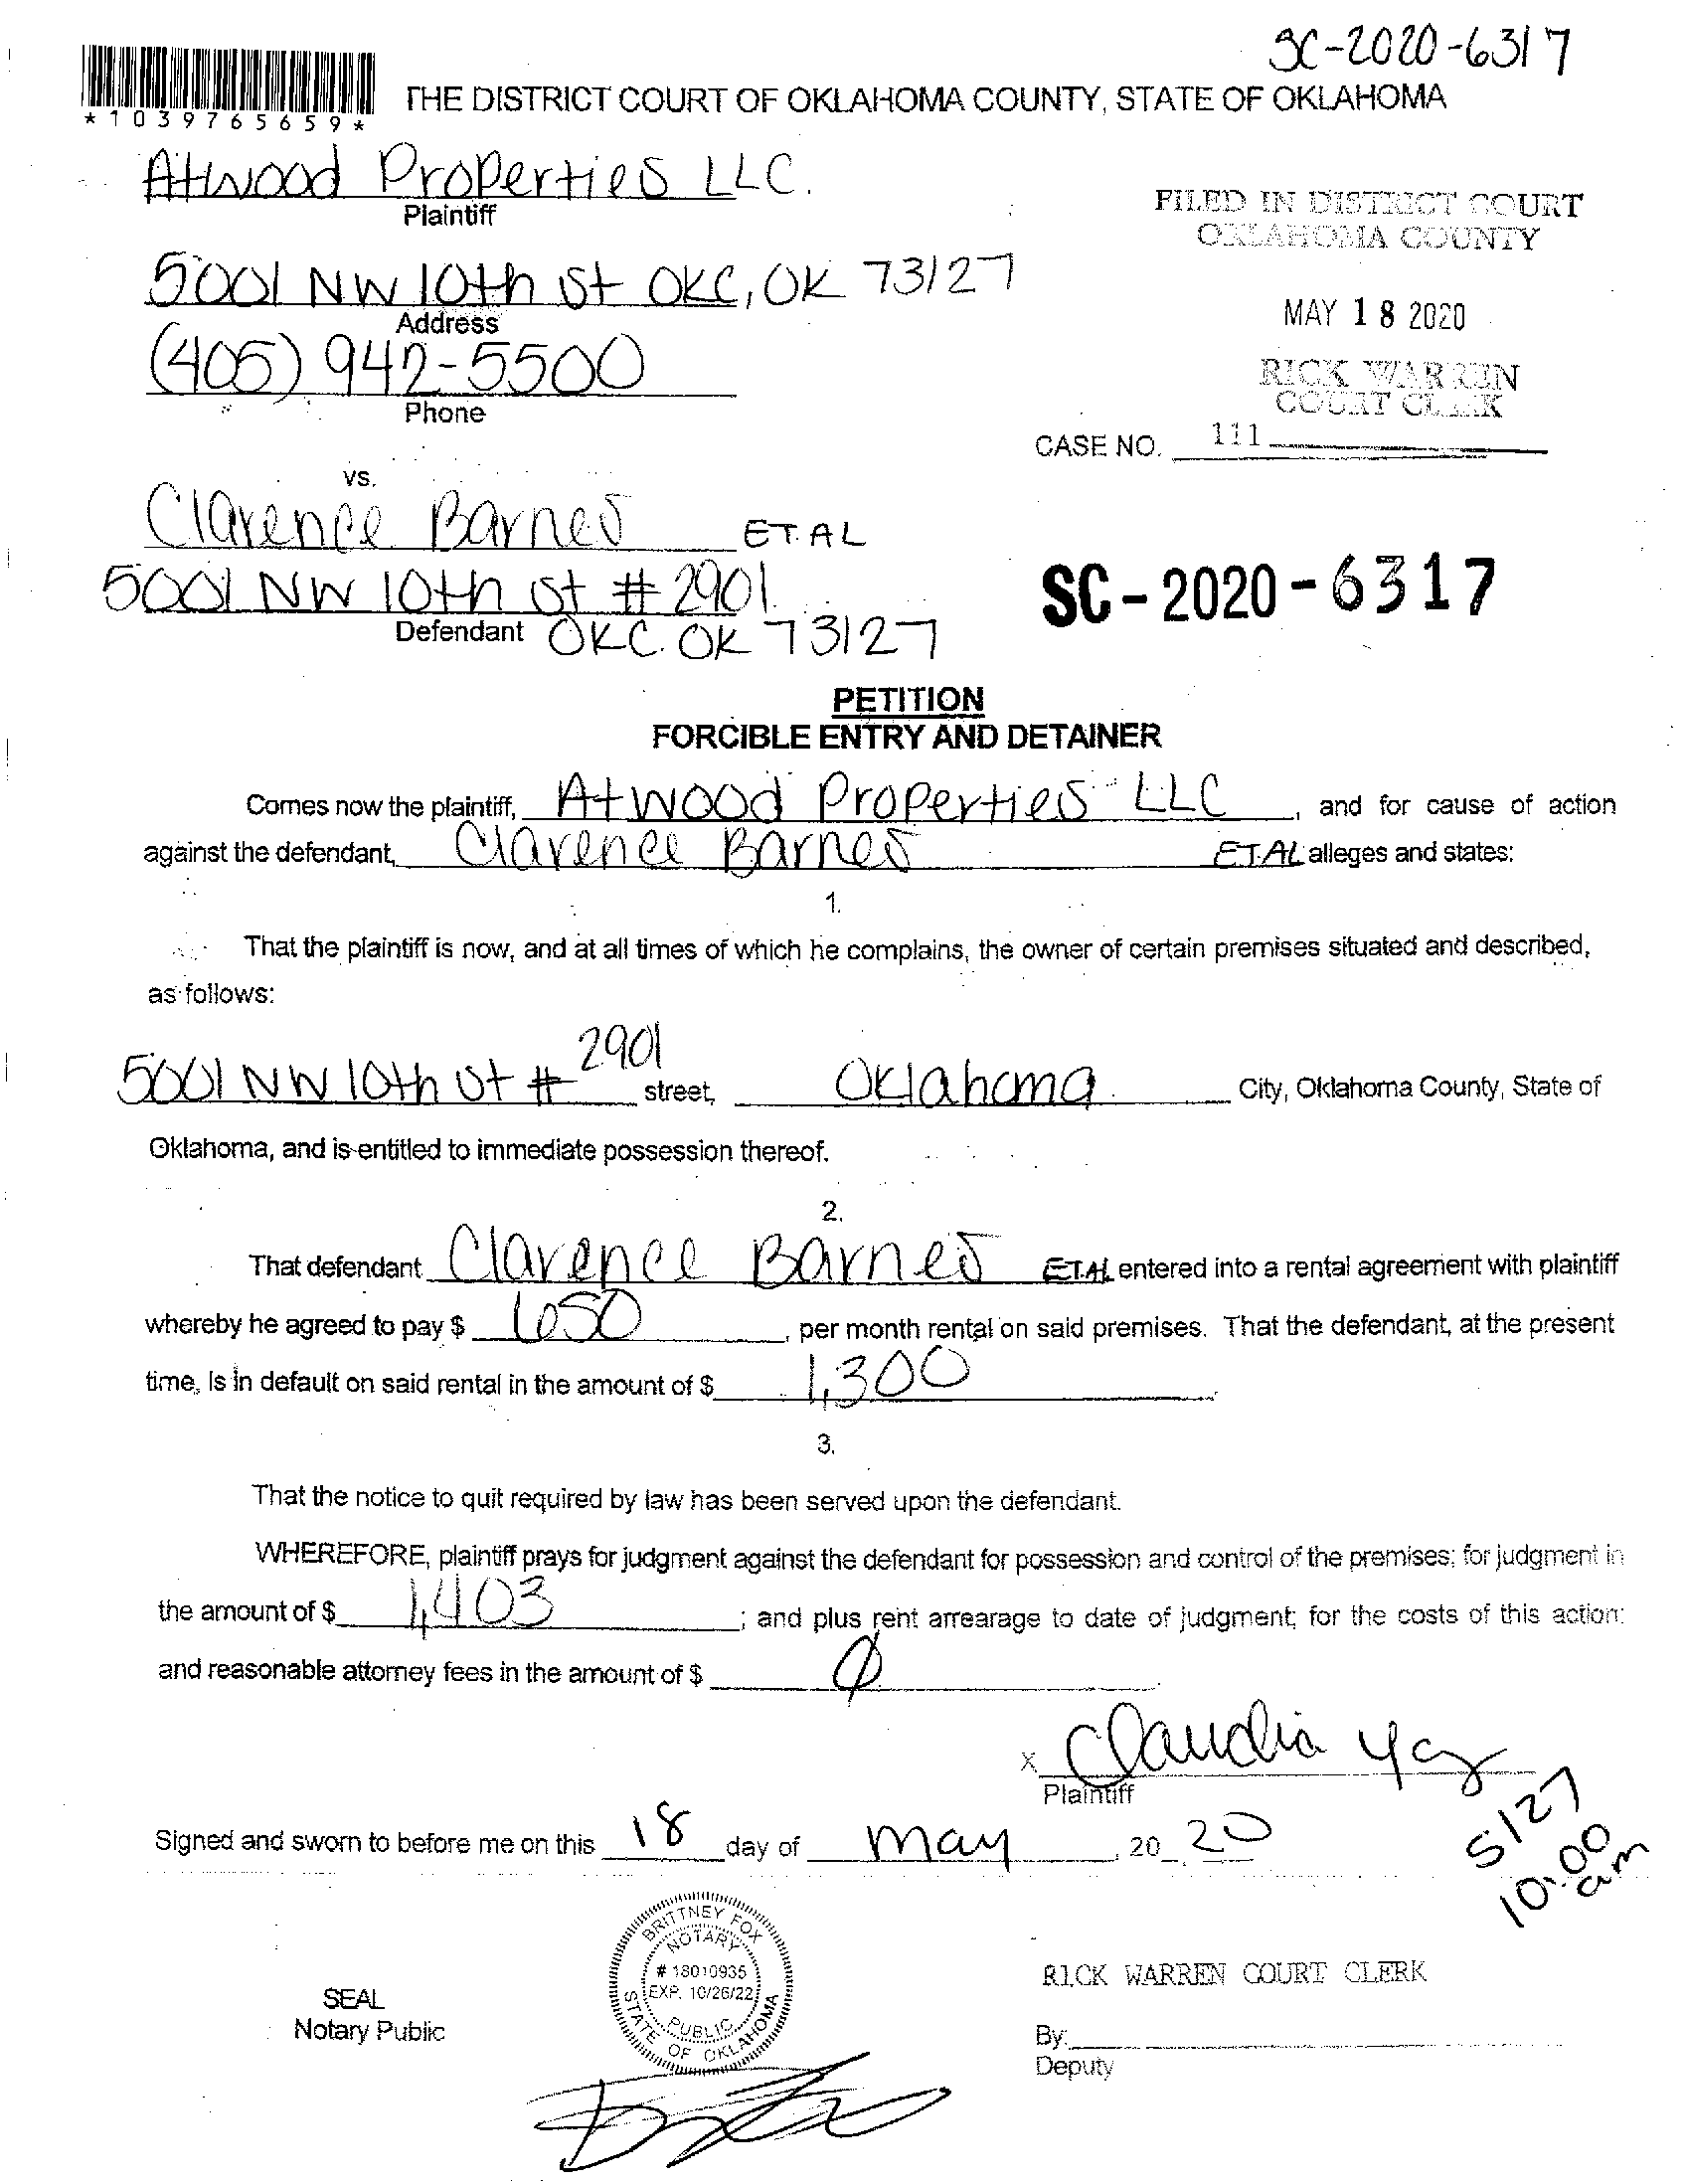 SC-2020-6317
*1039765659*
THE DISTRICT COURT OF OKLAHOMA COUNTY, STATE OF OKLAHOMA
Atwood Properties LLC.
Plaintiff
FILED IN DISTRICT COURT
OKLAHOMA COUNTY
5001 NW 10th St OKC, OK 73127
Address
MAY 18 2020
(405) 942-5500
Phone
RICK WARREN
COURT CLERK
CASE NO. 111
vs.
Clarence Barnes ET. AL
5001 NW 10th St # 2901
Defendant OKC. OK 73127
SC-2020-6317
PETITION
FORCIBLE ENTRY AND DETAINER
Comes now the plaintiff, Atwood Properties LLC, and for cause of action
against the defendant, Clarence Barnes ET.AL alleges and states:
1.
That the plaintiff is now, and at all times of which he complains, the owner of certain premises situated and described,
as follows:
5001 NW 10th St # 2901 street, Oklahoma City, Oklahoma County, State of
Oklahoma, and is entitled to immediate possession thereof.
2.
That defendant Clarence Barnes ET.AL entered into a rental agreement with plaintiff
whereby he agreed to pay $ 650, per month rental on said premises. That the defendant, at the present
time, is in default on said rental in the amount of $ 1,300.
3.
That the notice to quit required by law has been served upon the defendant.
WHEREFORE, plaintiff prays for judgment against the defendant for possession and control of the premises; for judgment in
the amount of $ 1,403; and plus rent arrearage to date of judgment; for the costs of this action:
and reasonable attorney fees in the amount of $ Ø.
x Claudia
Plaintiff
5/27
10:00
am
Signed and sworn to before me on this 18 day of May, 20 20
BRITTNEY FOX
NOTARY
# 18010935
EXP. 10/26/22
PUBLIC
STATE OF OKLAHOMA
SEAL
Notary Public
RICK WARREN COURT CLERK
By:
Deputy